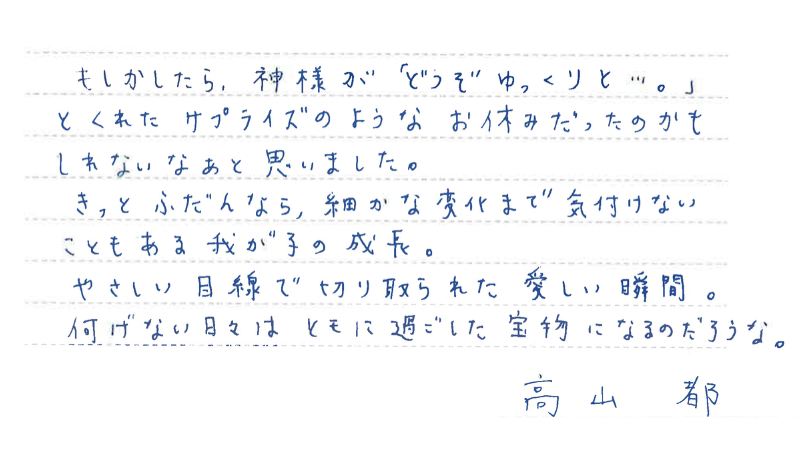 もしかしたら、神様が「どうぞゆっくりと…。」
とくれたサプライズのようなお休みだったのかも
しれないなぁと思いました。
きっとふだんなら、細かな変化まで気付けない
こともある我が子の成長。
やさしい目線で切り取られた愛しい瞬間。
何げない日々はともに過ごした宝物になるのだろうな。
高山 都